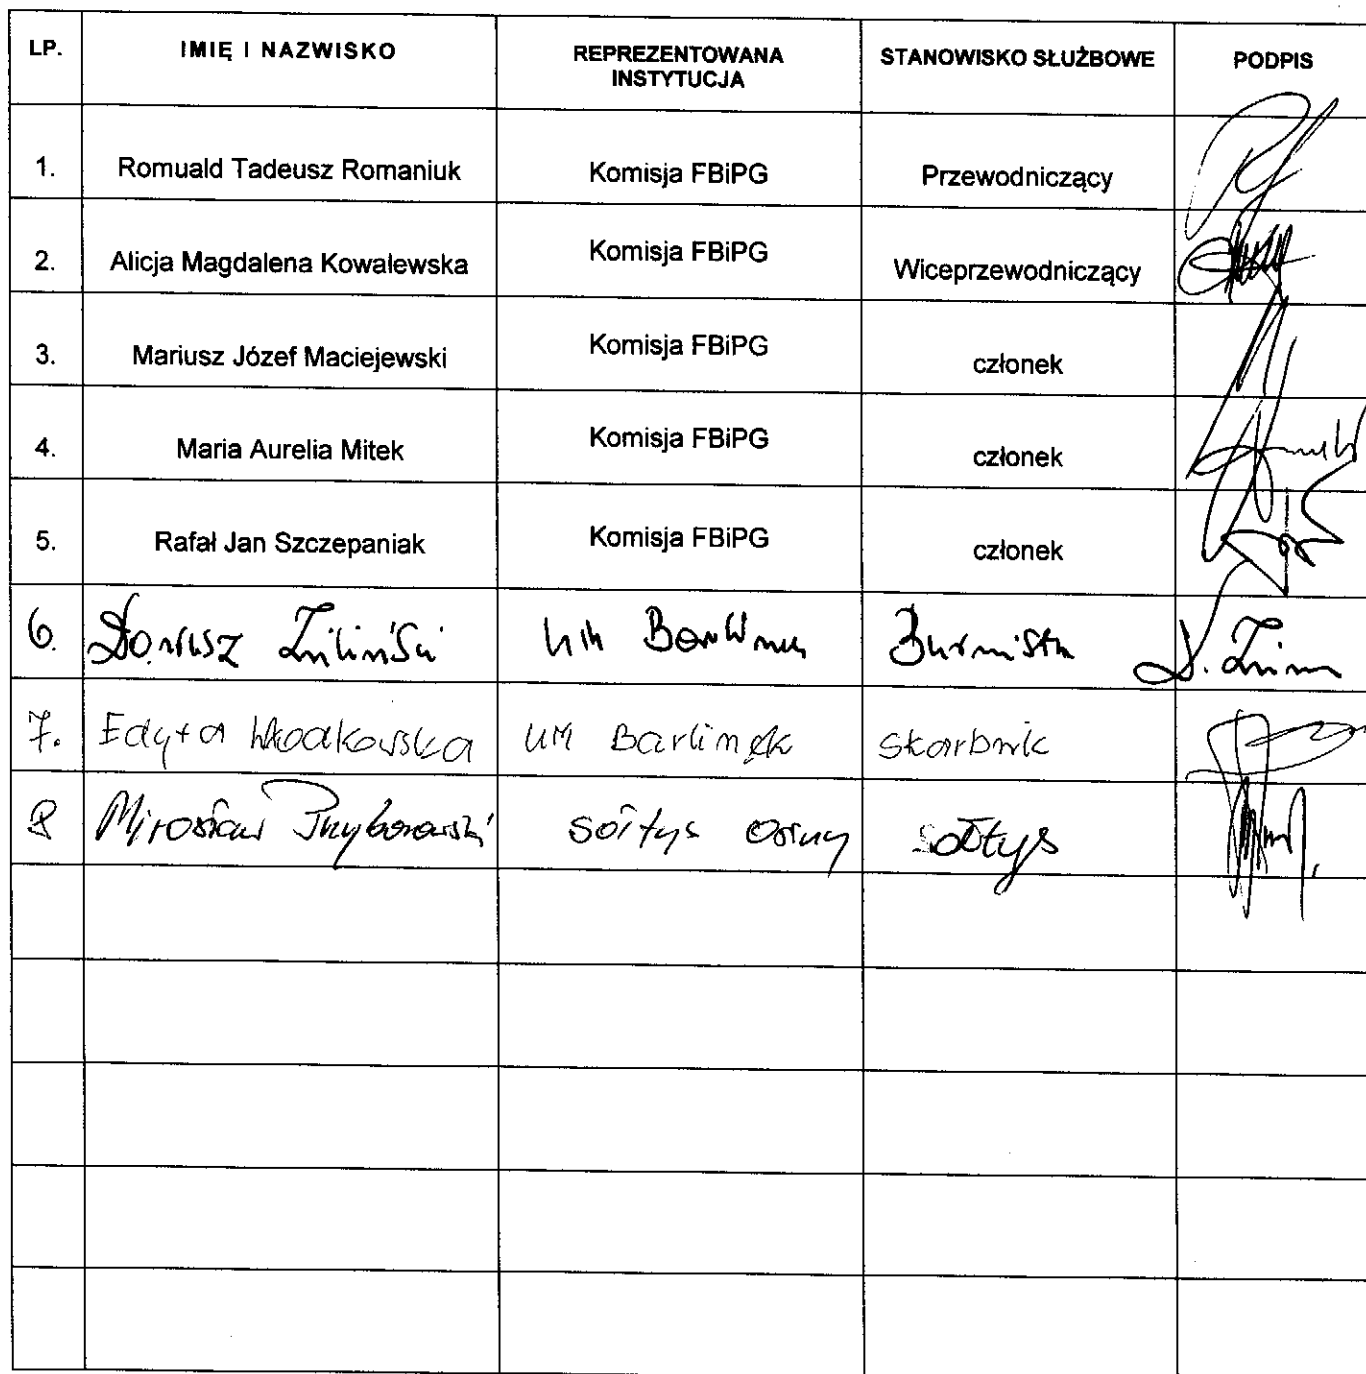 LP. IMIĘ I NAZWISKO REPREZENTOWANA INSTYTUCJA STANOWISKO SŁUŻBOWE PODPIS
1. Romuald Tadeusz Romaniuk Komisja FBiPG Przewodniczący
2. Alicja Magdalena Kowalewska Komisja FBiPG Wiceprzewodniczący
3. Mariusz Józef Maciejewski Komisja FBiPG członek
4. Maria Aurelia Mitek Komisja FBiPG członek
5. Rafał Jan Szczepaniak Komisja FBiPG członek
6. Dariusz Zieliński UM Barlinek Burmistrz
7. Edyta Włodkowska UM Barlinek Skarbnik
8 Mirosław Przyborowski sołtys Osiny sołtys